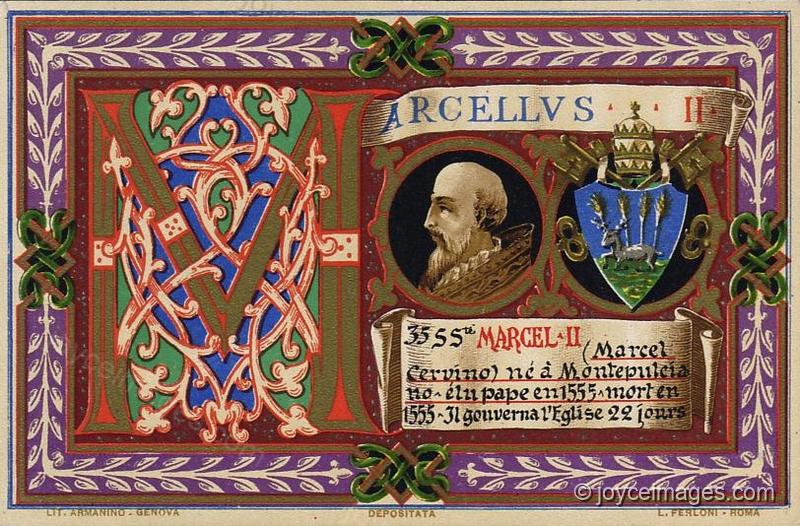 MARCELLVS · · · II
35 SSté MARCEL·II
(Marcel
Cervino) né à Montepulcia
no·élu pape en 1555·mort en
1555·Il gouverna l'Eglise 22 jours
© joyceimages.com
LIT. ARMANINO - GENOVA
DEPOSITATA
L. FERLONI - ROMA